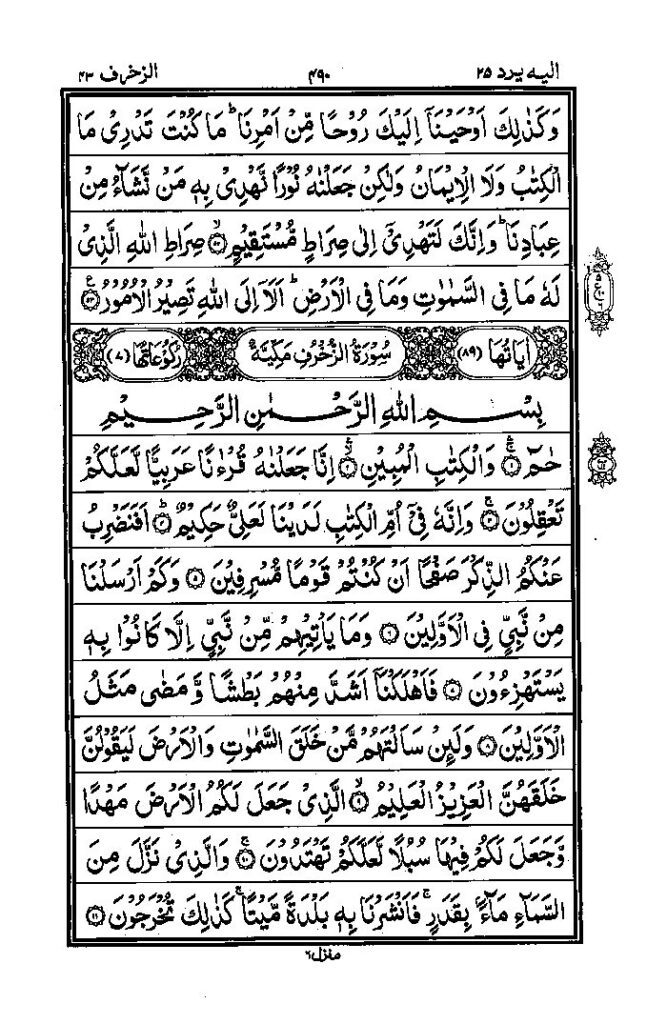 الزخرف ۴۳ ۴۹۰ الیہ یرد ۲۵
وَكَذٰلِكَ اَوْحَيْنَاۤ اِلَيْكَ رُوْحًا مِّنْ اَمْرِنَا ؕ مَا كُنْتَ تَدْرِىْ مَا
الْكِتٰبُ وَلَا الْاِيْمَانُ وَلٰكِنْ جَعَلْنٰهُ نُوْرًا نَّهْدِىْ بِهٖ مَنْ نَّشَآءُ مِنْ
عِبَادِنَا ؕ وَاِنَّكَ لَتَهْدِىْۤ اِلٰى صِرَاطٍ مُّسْتَقِيْمٍ ۙ۝۵۲ صِرَاطِ اللّٰهِ الَّذِىْ
لَهٗ مَا فِى السَّمٰوٰتِ وَمَا فِى الْاَرْضِ ؕ اَلَاۤ اِلَى اللّٰهِ تَصِيْرُ الْاُمُوْرُ ۝۵۳
اٰيَاتُهَا (۸۹) سُوْرَةُ الزُّخْرُفِ مَكِّيَّةٌ رُكُوْعَاتُهَا (۷)
بِسْمِ اللّٰهِ الرَّحْمٰنِ الرَّحِيْمِ
حٰمٓ ۚ۝۱ وَالْكِتٰبِ الْمُبِيْنِ ۙ۝۲ اِنَّا جَعَلْنٰهُ قُرْءٰنًا عَرَبِيًّا لَّعَلَّكُمْ
تَعْقِلُوْنَ ۚ۝۳ وَاِنَّهٗ فِىْۤ اُمِّ الْكِتٰبِ لَدَيْنَا لَعَلِىٌّ حَكِيْمٌ ؕ۝۴ اَفَنَضْرِبُ
عَنْكُمُ الذِّكْرَ صَفْحًا اَنْ كُنْتُمْ قَوْمًا مُّسْرِفِيْنَ ۝۵ وَكَمْ اَرْسَلْنَا
مِنْ نَّبِىٍّ فِى الْاَوَّلِيْنَ ۝۶ وَمَا يَاْتِيْهِمْ مِّنْ نَّبِىٍّ اِلَّا كَانُوْا بِهٖ
يَسْتَهْزِءُوْنَ ۝۷ فَاَهْلَكْنَاۤ اَشَدَّ مِنْهُمْ بَطْشًا وَّمَضٰى مَثَلُ
الْاَوَّلِيْنَ ۝۸ وَلَئِنْ سَاَلْتَهُمْ مَّنْ خَلَقَ السَّمٰوٰتِ وَالْاَرْضَ لَيَقُوْلُنَّ
خَلَقَهُنَّ الْعَزِيْزُ الْعَلِيْمُ ۙ۝۹ الَّذِىْ جَعَلَ لَكُمُ الْاَرْضَ مَهْدًا
وَّجَعَلَ لَكُمْ فِيْهَا سُبُلًا لَّعَلَّكُمْ تَهْتَدُوْنَ ۚ۝۱۰ وَالَّذِىْ نَزَّلَ مِنَ
السَّمَآءِ مَآءًۢ بِقَدَرٍ ۚ فَاَنْشَرْنَا بِهٖ بَلْدَةً مَّيْتًا ۚ كَذٰلِكَ تُخْرَجُوْنَ ۝۱۱
منزل ۶